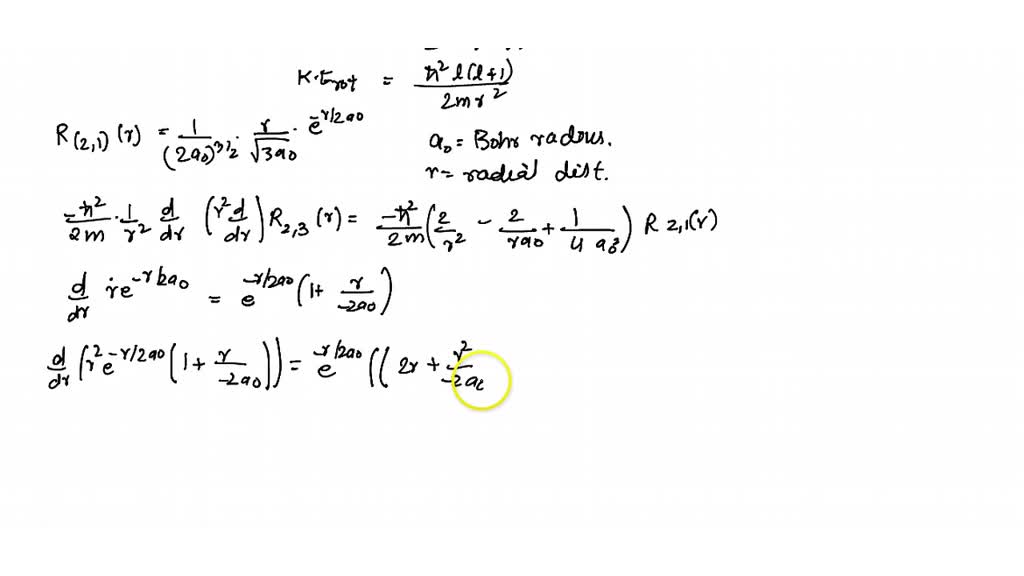 K.Erot = ℏ² l(l+1) / 2mr²
R(2,1) (r) = 1/(2a₀)^3/2 · r/√3a₀ · e^-r/2a₀
a₀ = Bohr radous.
r = radial dist.
-ℏ²/2m · 1/r² d/dr (r² d/dr) R2,3 (r) = -ℏ²/2m (2/r² - 2/ra₀ + 1/4a₀²) R 2,1(r)
d/dr r e^-r/2a₀ = e^-r/2a₀ (1 + r/-2a₀)
d/dr (r² e^-r/2a₀ (1 + r/-2a₀)) = e^-r/2a₀ ((2r + r²/-2a₀